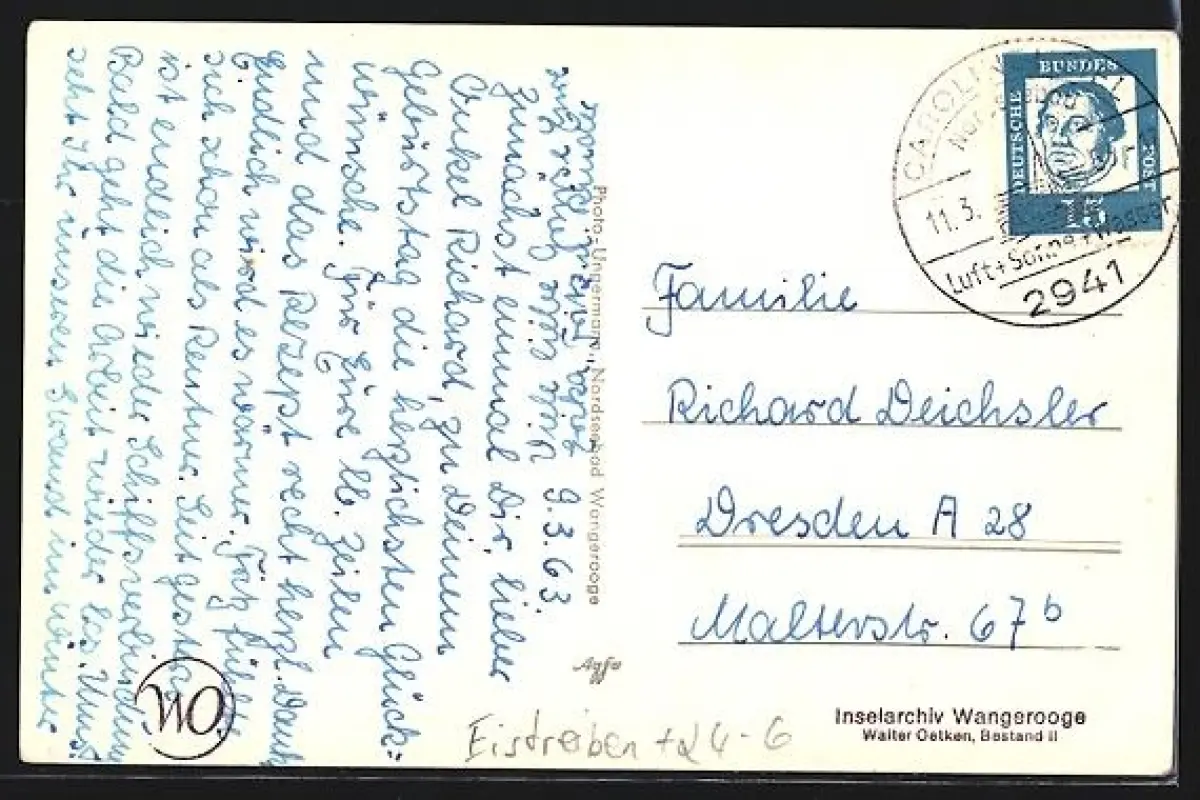 9.3.63.
Zunächst einmal Dir, lieber
Onkel Richard, zu Deinem
Geburtstag die herzlichsten Glück-
wünsche. Für Eure lb. Zeilen
und das Rezept recht herzl. Dank
Endlich wird es wärmer. Fritz fühlt
sich schon als Rentner. Seit gestern
ist endlich wieder Schiffsverbindung
Bald geht die Arbeit wieder los. Uns
seht Ihr unseren Strand im Winter
Photo-Ungermann, Nordseebad Wangerooge
Agfa
WO
DEUTSCHE BUNDESPOST
15
CAROLINENSIEL
Nordseebad
11.3.
Luft + Sonne + Wasser
2941
Familie
Richard Deichsler
Dresden A 28
Malterstr. 67b
Inselarchiv Wangerooge
Walter Oetken, Bestand II
Eistreiben +24-6